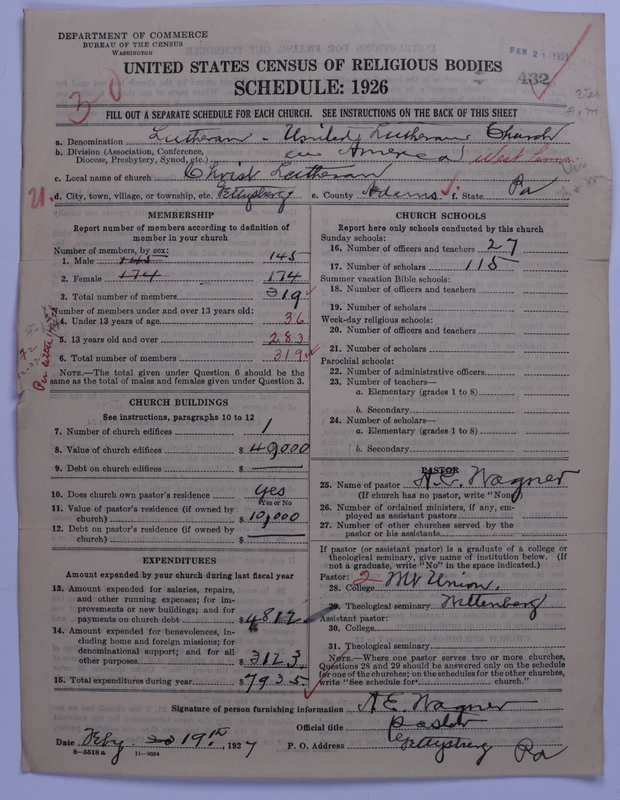 DEPARTMENT OF COMMERCE
BUREAU OF THE CENSUS
WASHINGTON
UNITED STATES CENSUS OF RELIGIOUS BODIES
SCHEDULE: 1926
432
30
FILL OUT A SEPARATE SCHEDULE FOR EACH CHURCH. SEE INSTRUCTIONS ON THE BACK OF THIS SHEET
a. Denomination Lutheran - United Lutheran Church
b. Division (Association, Conference, Diocese, Presbytery, Synod, etc.) in America
c. Local name of church Christ Lutheran
21.
d. City, town, village, or township, etc. Gettysburg e. County Adams f. State Pa
MEMBERSHIP
Report number of members according to definition of
member in your church
Number of members, by sex:
1. Male 145 145
2. Female 174 174
3. Total number of members 319
Number of members under and over 13 years old:
4. Under 13 years of age 36
5. 13 years old and over 283
6. Total number of members 319
NOTE.—The total given under Question 6 should be the
same as the total of males and females given under Question 3.
CHURCH BUILDINGS
See instructions, paragraphs 10 to 12
7. Number of church edifices 1
8. Value of church edifices $ 40,000
9. Debt on church edifices $
10. Does church own pastor's residence yes
Yes or No
11. Value of pastor's residence (if owned by
church) $ 10,000
12. Debt on pastor's residence (if owned by
church) $
EXPENDITURES
Amount expended by your church during last fiscal year
13. Amount expended for salaries, repairs,
and other running expenses; for im-
provements or new buildings; and for
payments on church debt $ 4812
14. Amount expended for benevolences, in-
cluding home and foreign missions; for
denominational support; and for all
other purposes $ 3123
15. Total expenditures during year $ 7935
CHURCH SCHOOLS
Report here only schools conducted by this church
Sunday schools:
16. Number of officers and teachers 27
17. Number of scholars 115
Summer vacation Bible schools:
18. Number of officers and teachers
19. Number of scholars
Week-day religious schools:
20. Number of officers and teachers
21. Number of scholars
Parochial schools:
22. Number of administrative officers
23. Number of teachers—
a. Elementary (grades 1 to 8)
b. Secondary
24. Number of scholars—
a. Elementary (grades 1 to 8)
b. Secondary
PASTOR
25. Name of pastor A. E. Wagner
(If church has no pastor, write "None")
26. Number of ordained ministers, if any, em-
ployed as assistant pastors
27. Number of other churches served by the
pastor or his assistants
If pastor (or assistant pastor) is a graduate of a college or
theological seminary, give name of institution below. (If
not a graduate, write "No" in the space indicated.)
Pastor: 2
28. College Mt Union,
29. Theological seminary Wittenberg
Assistant pastor:
30. College
31. Theological seminary
NOTE.—Where one pastor serves two or more churches,
Questions 28 and 29 should be answered only on the schedule
for one of the churches; on the schedules for the other churches,
write "See schedule for church."
Signature of person furnishing information A. E. Wagner
Official title Pastor
Date Feby 19th, 1927 P. O. Address Gettysburg Pa
8—5518a 11—9054